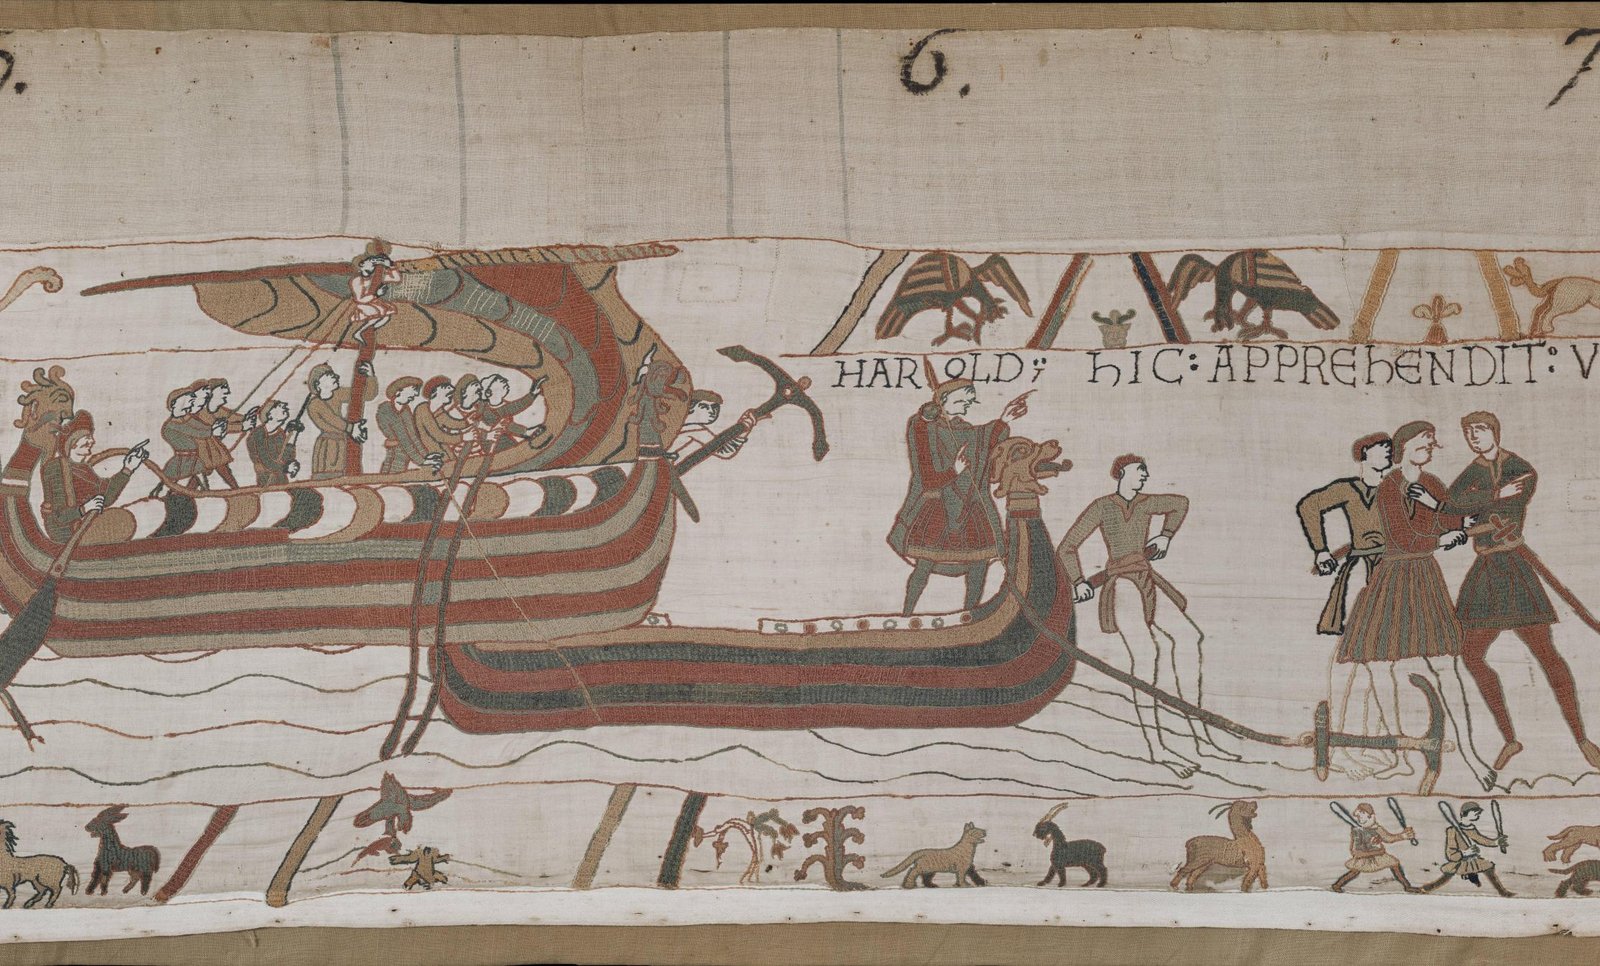 6. 7
HAROLD: hIC: APPREhENDIT: V